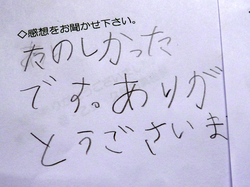 ◇感想をお聞かせ下さい。
たのしかった
です。ありが
とうごさいま